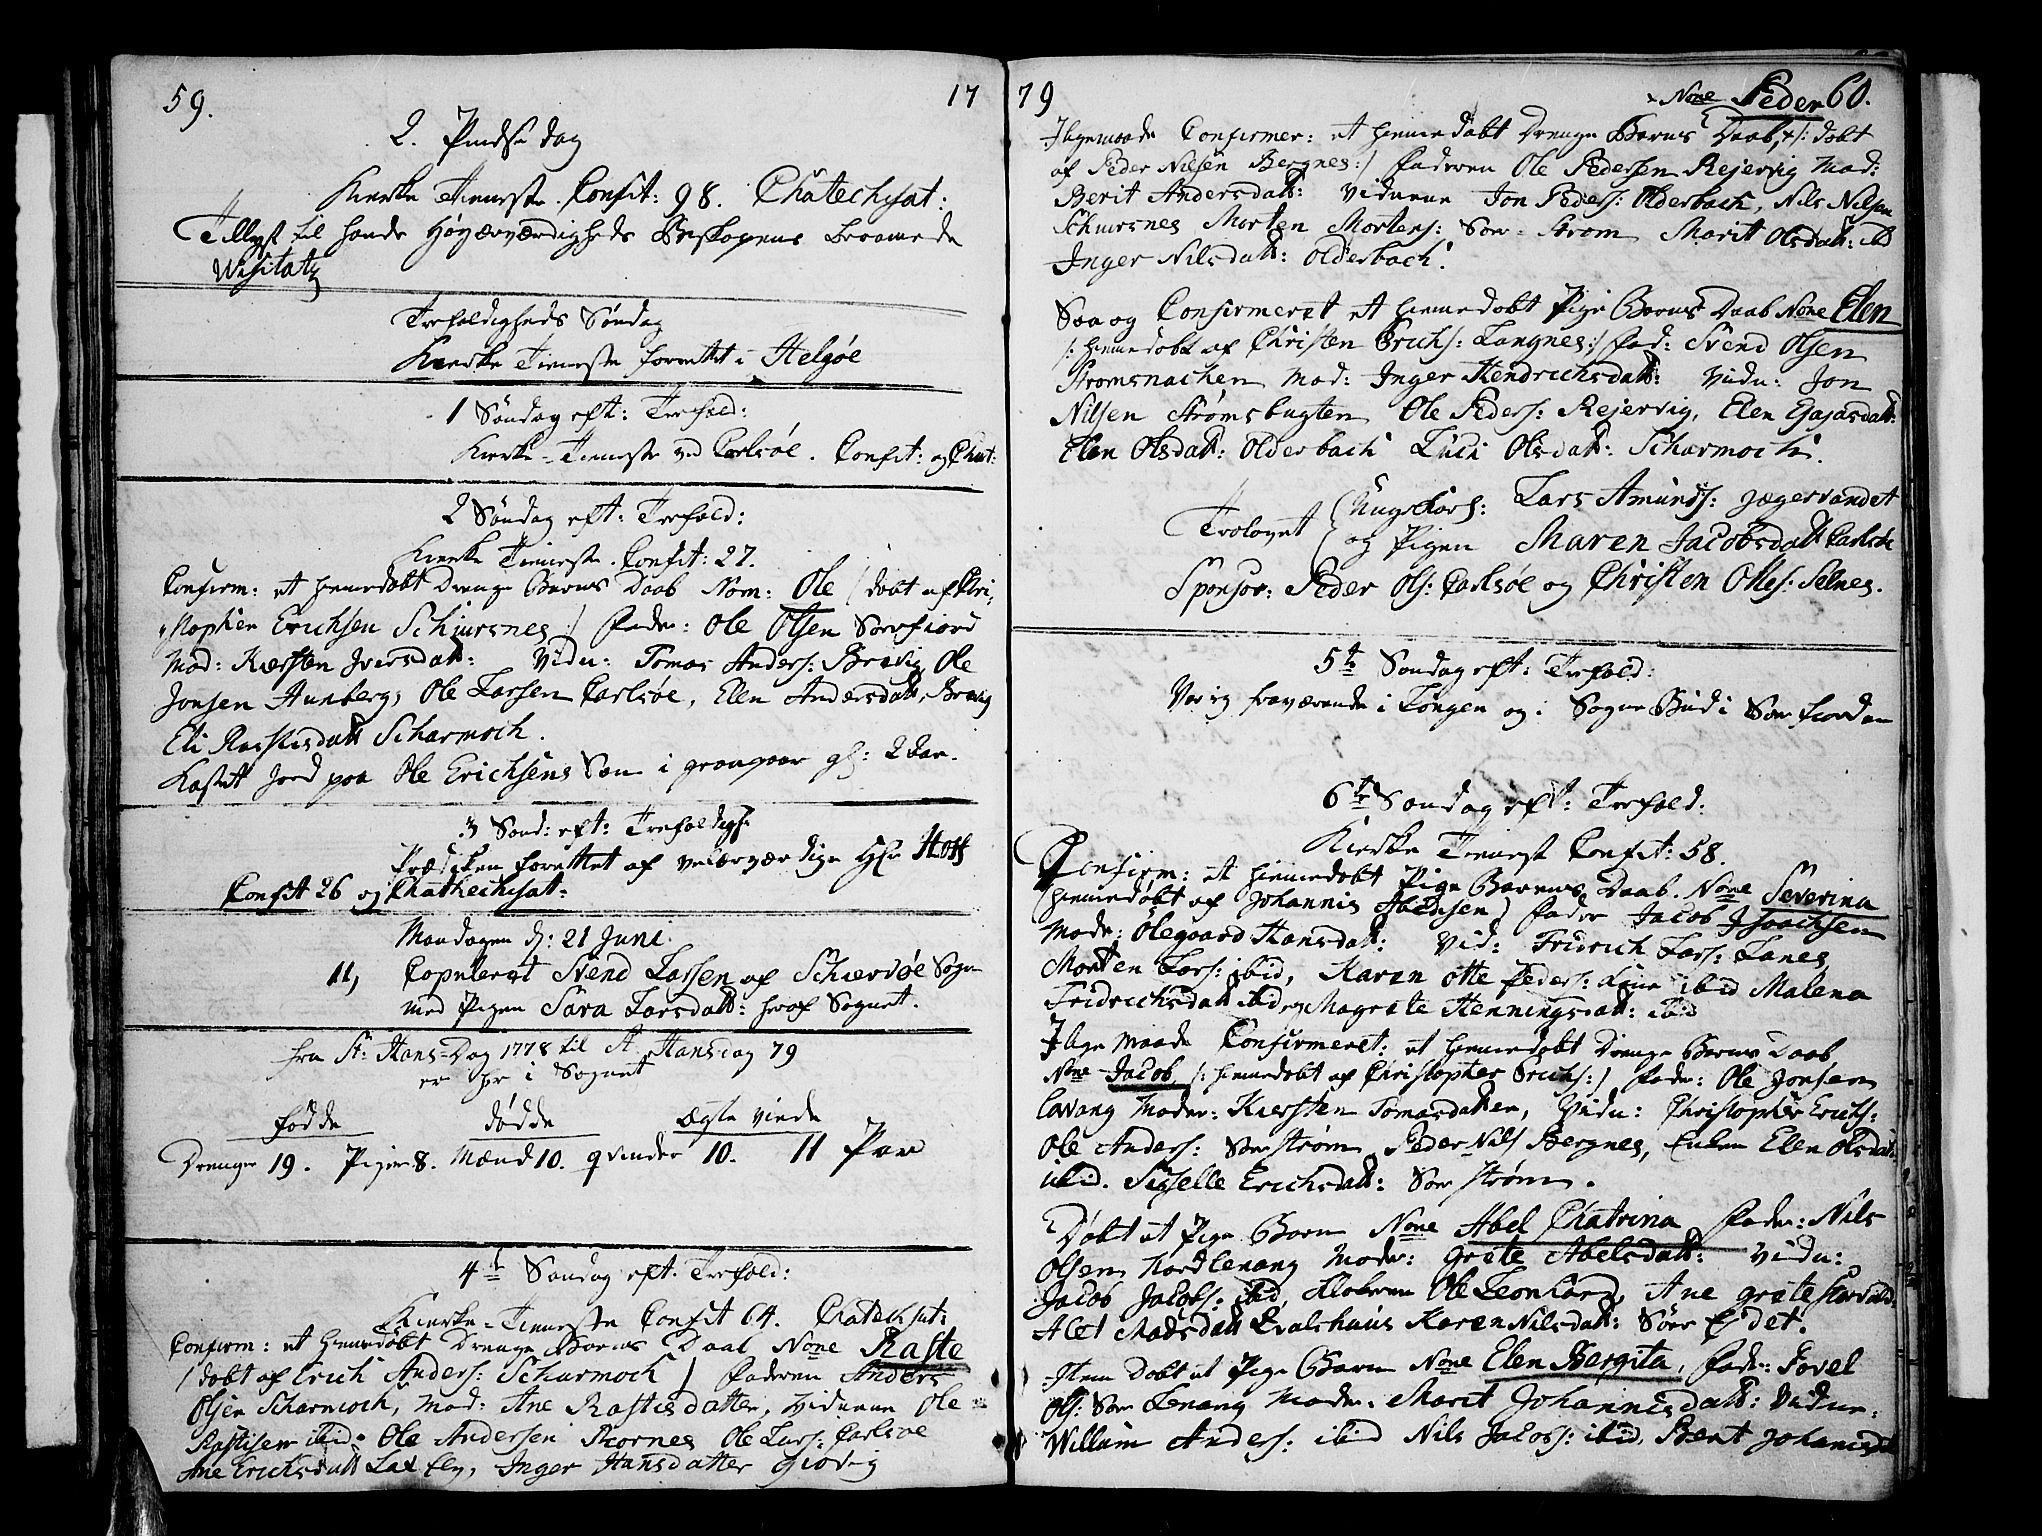 59.
17
2. Pindse dag
Kierke Tieneste. Confit: 98. Chatechisat:
Tillyst til hands Høyærværdigheds Biskopens berammede
Visitatz
Trefoldigheds Søndag
Kierke Tieneste forrettet i Helgøe
1 Søndag eft: Trefold:
Kierke-Tieneste ved Carlsøe. Confit: og Chat:
2 Søndag eft: Trefold:
Kierke Tieneste. Confit: 27.
Confirm: et hiemedøbt Drenge Barns Daab Nom: Ole / døbt af Chri-
stopher Erichsen Schiursnes :/ Fader: Ole Olsen Sørfiord
Mod: Kiersten Iversdatt: Vidn: Tomas Anders: Brevig Ole
Jonsen Hunberg, Ole Larsen Carlsøe, Elen Andersdatt: Brevig
Eli Rastisdatt Scharmoch.
Kastet Jord paa Ole Erichsens Søn i gl: 2 Aar.
3 Sønd: eft: Trefoldigh:
Prædiken forrettet af velærværdige Hr Hoff
Confit 26 og Chathechisat:
Mandagen d: 21 Juni.
11, Copuleret Svend Larsen af Schiervøe Sogn
med Pigen Sara Larsdatt: her af Sognet.
fra St: Hans-Dag 1778 til St Hansdag 79
er her i Sognet
fødde dødde Ægte viede
Drenge 19. Piger 8. Mænd 10. qvinder 10. 11 Par
4de Søndag eft. Trefold:
Kierke-Tieneste Confit 64. Chateksat:
Confirm: et hiemedøbt Drenge Barns Daab None Raste
/ døbt af Erich Anders: Scharmoch / Faderen Anders
Olsen Scharmoch, Mod: Ane Rastisdatter, Vidnerne Ole
Rastisen ibid: Ole Andersen Ole Lars: Carlsøe
Ane Erichsdatt Inger Hansdatter
79
None Peder 60.
Iligemaade Confirmer: et hiemedøbt Drenge Barns Daab, /: døbt
af Peder Nilsen Bergnes :/ Faderen Ole Pedersen Rejervig Mod:
Berit Andersdatt: Vidnerne Jon Peders: Olderbach, Nils Nilsen
Schiursnes Morten Mortens: Sør-Strøm Marit Olsdatt: ibd
Inger Nilsdatt: Olderbach.
Saa og Confirmeret et hiemedøbt Pige Barns Daab None Elen
/: hiemedøbt af Christen Erichs: Langnes :/ Fad: Svend Olsen
Strømsnachen Mod: Inger Hendrichsdatt: Vidn: Jon
Nilsen Strømsbugten Ole Peders: Rejervig, Elen
Elen Olsdatt: Olderbach Olsdatt: Scharmoch.
Trolovet (Ungkarl: Lars Amunds: Jægervandet
og Pigen Maren Jacobsdatt Carlsøe
Sponsor: Peder Ols: Carlsøe og Christen Oles: Selnes.
5te Søndag eft: Trefold:
Var ieg fraværende i Longen og i Sogne Bud i Sør fiorden
6te Søndag eft: Trefold:
Kierke Tienest Confit: 58.
Confirm: et hiemedøbt Pige Barns Daab. None Severina
hiemedøbt af Johannis / Fader Jacob Isaachsen
Moder: Olegaard Hansdatt: Vid: Fridrich Lars: Lanes,
Morten Lars: ibid, Karen Otte Peders: Kone ibid Malena
Fridrichsdatt ibid og Magrete Henningsdatt: ibid
Ilige maade Confirmeret: et hiemedøbt Drenge Barns Daab
None Jacob, /: hiemedøbt af Christopher Erichs: / Fader: Ole Jonsen
Lavang Moder: Kiersten Tomasdatter, Vidn: Christopher Erichs:
Ole Anders: Sør Strøm Peder Nils Bergnes, Enken Elen Olsdatt:
ibid. Sidselle Erichsdatt: Sør Strøm.
Døbt et Pige Barn None Abel Chatrina Fader: Nils
Olsen Nordlenang Moder: Grete Abelsdatt: Vidn:
Jacob Jacobs: ibid, Klokeren Ole Leonhard, Ane Grete
Alet Madsdatt Karen Nilsdatt: Sør Ejdet.
Item Døbt et Pige Barn None Elen Bergita, Fader Povel
Ols: Sør Lenang Moder. Marit Johannisdatt: Vidne.
Willum Anders: ibid Nils Jacobs: ibid, Berit Johannisd